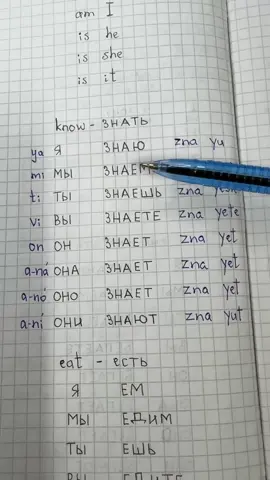 am I
is he
is she
is it
know - ЗНАТЬ
ya Я ЗНАЮ zna yu
mi МЫ ЗНАЕМ
ti ТЫ ЗНАЕШЬ zna
vi ВЫ ЗНАЕТЕ zna yete
on ОН ЗНАЕТ zna yet
a-ná ОНА ЗНАЕТ zna yet
a-nó ОНО ЗНАЕТ zna yet
a-ní ОНИ ЗНАЮТ zna yut
eat - есть
Я ЕМ
МЫ ЕДИМ
ТЫ ЕШЬ
ВЫ ЕДИТЕ